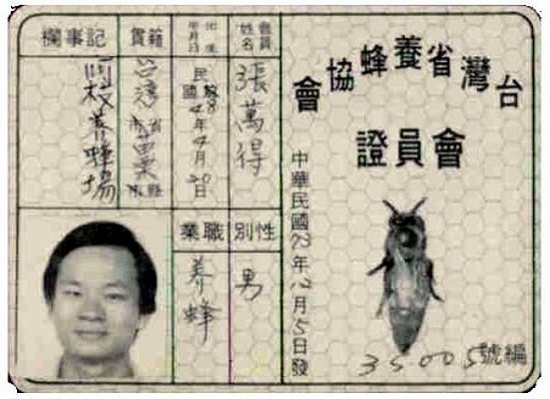 台灣省養蜂協會
會員證
中華民國73年12月5日發
編號 35005
會員姓名
張萬得
出生年月日
民國 年4月20日
籍貫
台灣省苗栗縣
記事欄
養蜂場
性別
男
職業
養蜂